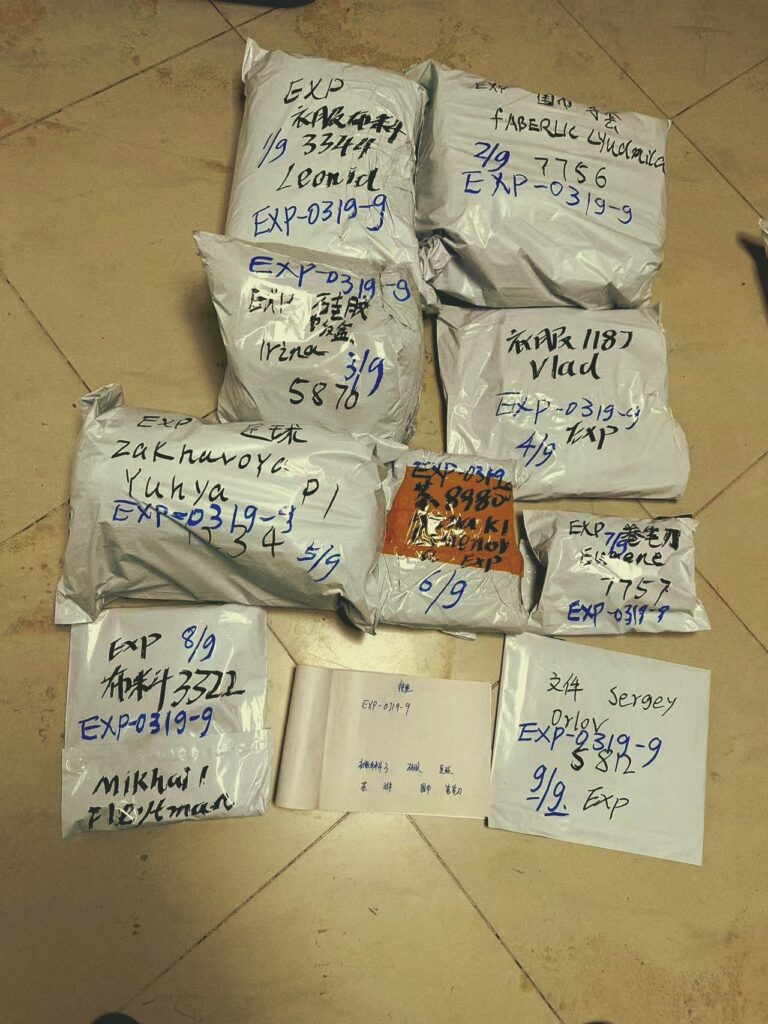 EXP
衣服布料
1/9 3344
Leonid
EXP-0319-9
EXP 围巾手套
FABERLIC Lyudmila
2/9 7756
EXP-0319-9
EXP-0319-9
EXP 硅胶
Irina 3/9
5876
衣服 1187
Vlad
EXP-0319-9
4/9 EXP
EXP 足球
Zakharova
Yuhya P1
EXP-0319-9
1234 5/9
EXP-0319
茶 8980
EXP
6/9
EXP 卷笔刀
7/9
Eugene
7757
EXP-0319-9
EXP 8/9
布料 3322
EXP-0319-9
Mikhail
EXP-0319-9
衣服布料3 硅胶 足球
茶 文件 围巾 卷笔刀
文件 Sergey
Orlov
EXP-0319-9
5812
9/9 EXP